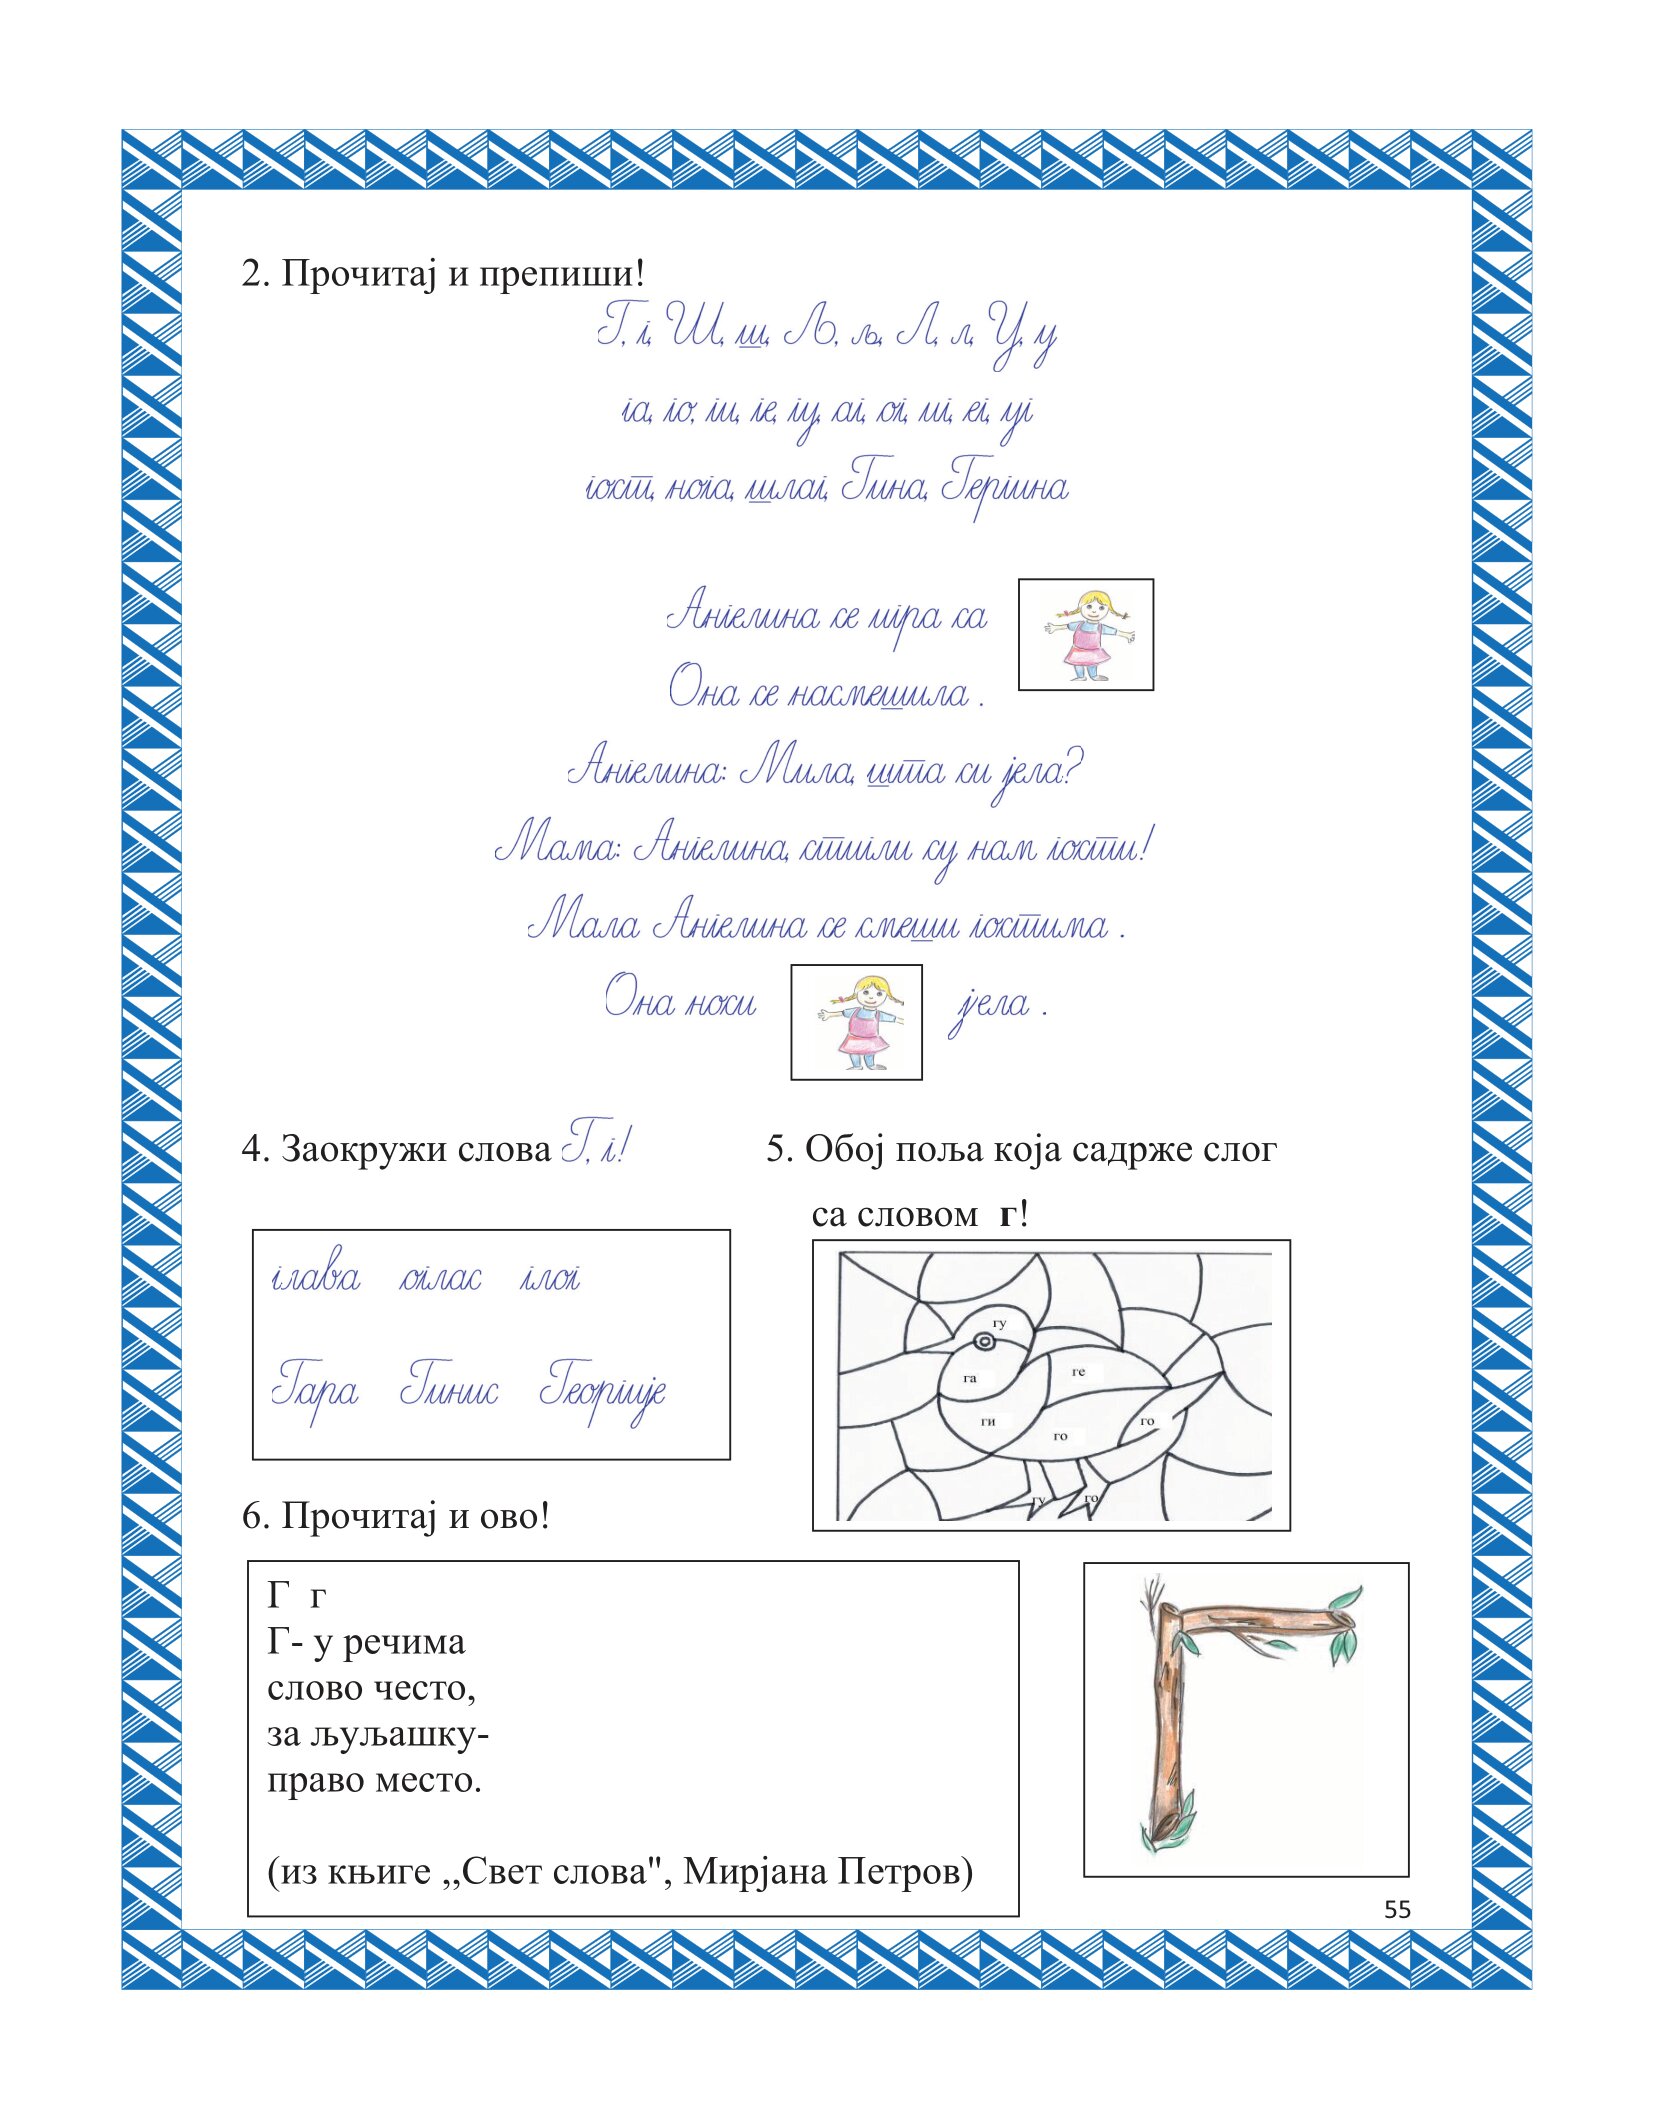 2. Прочитај и препиши!
Г, г, Ш, ш, Љ, љ, Л, л, У, у
га, го, ги, ге, гу, аг, ог, иг, ег, уг
гост, нога, шлаг, Гина, Гергина
Ангелина се игра са
Она се насмешила .
Ангелина: Мила, шта си јела?
Мама: Ангелина, стигли су нам гости!
Мала Ангелина се смеши гостима .
Она носи јела .
4. Заокружи слова Г, г!
5. Обој поља која садрже слог
са словом г!
глава оглас глог
Гара Гинис Георгије
гу
га
ге
ги
го
го
гу
го
6. Прочитај и ово!
Г г
Г- у речима
слово често,
за љуљашку-
право место.
(из књиге ,,Свет слова", Мирјана Петров)
55